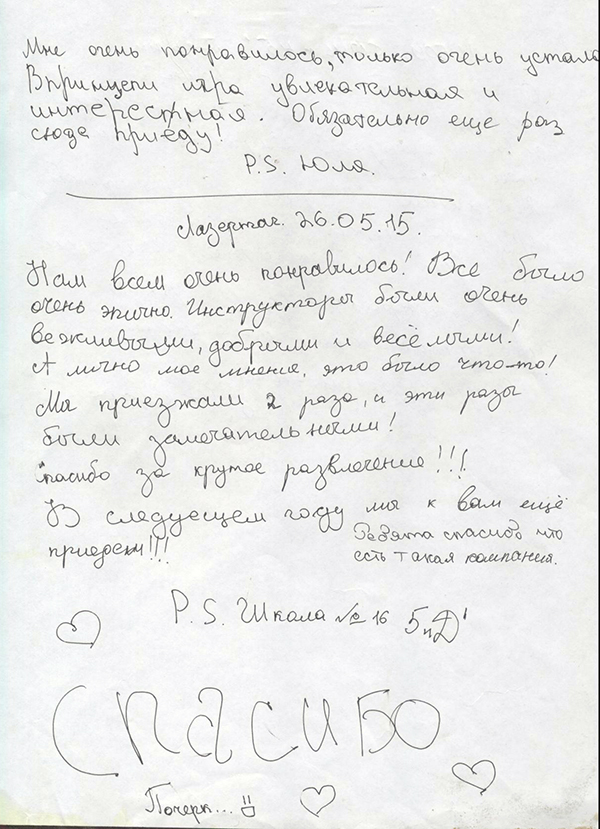 Мне очень понравилось, только очень устала
Впринцепи игра увлекательная и
интересная. Обязательно еще раз
сюда приеду!
P.S. Юля.
Лазертаг. 26.05.15.
Нам всем очень понравилось! Всё было
очень эпично. Инструкторы были очень
вежливыми, добрыми и весёлыми!
А лично мое мнение, это было что-то!
Мы приезжали 2 раза, и эти разы
были замечательными!
Спасибо за крутое развлечение!!!
В следуещем году мы к вам ещё
приедем!!!
Ребята спасибо что
есть такая компания.
P.S. Школа №16 5"Д"
Спасибо
Почерк...